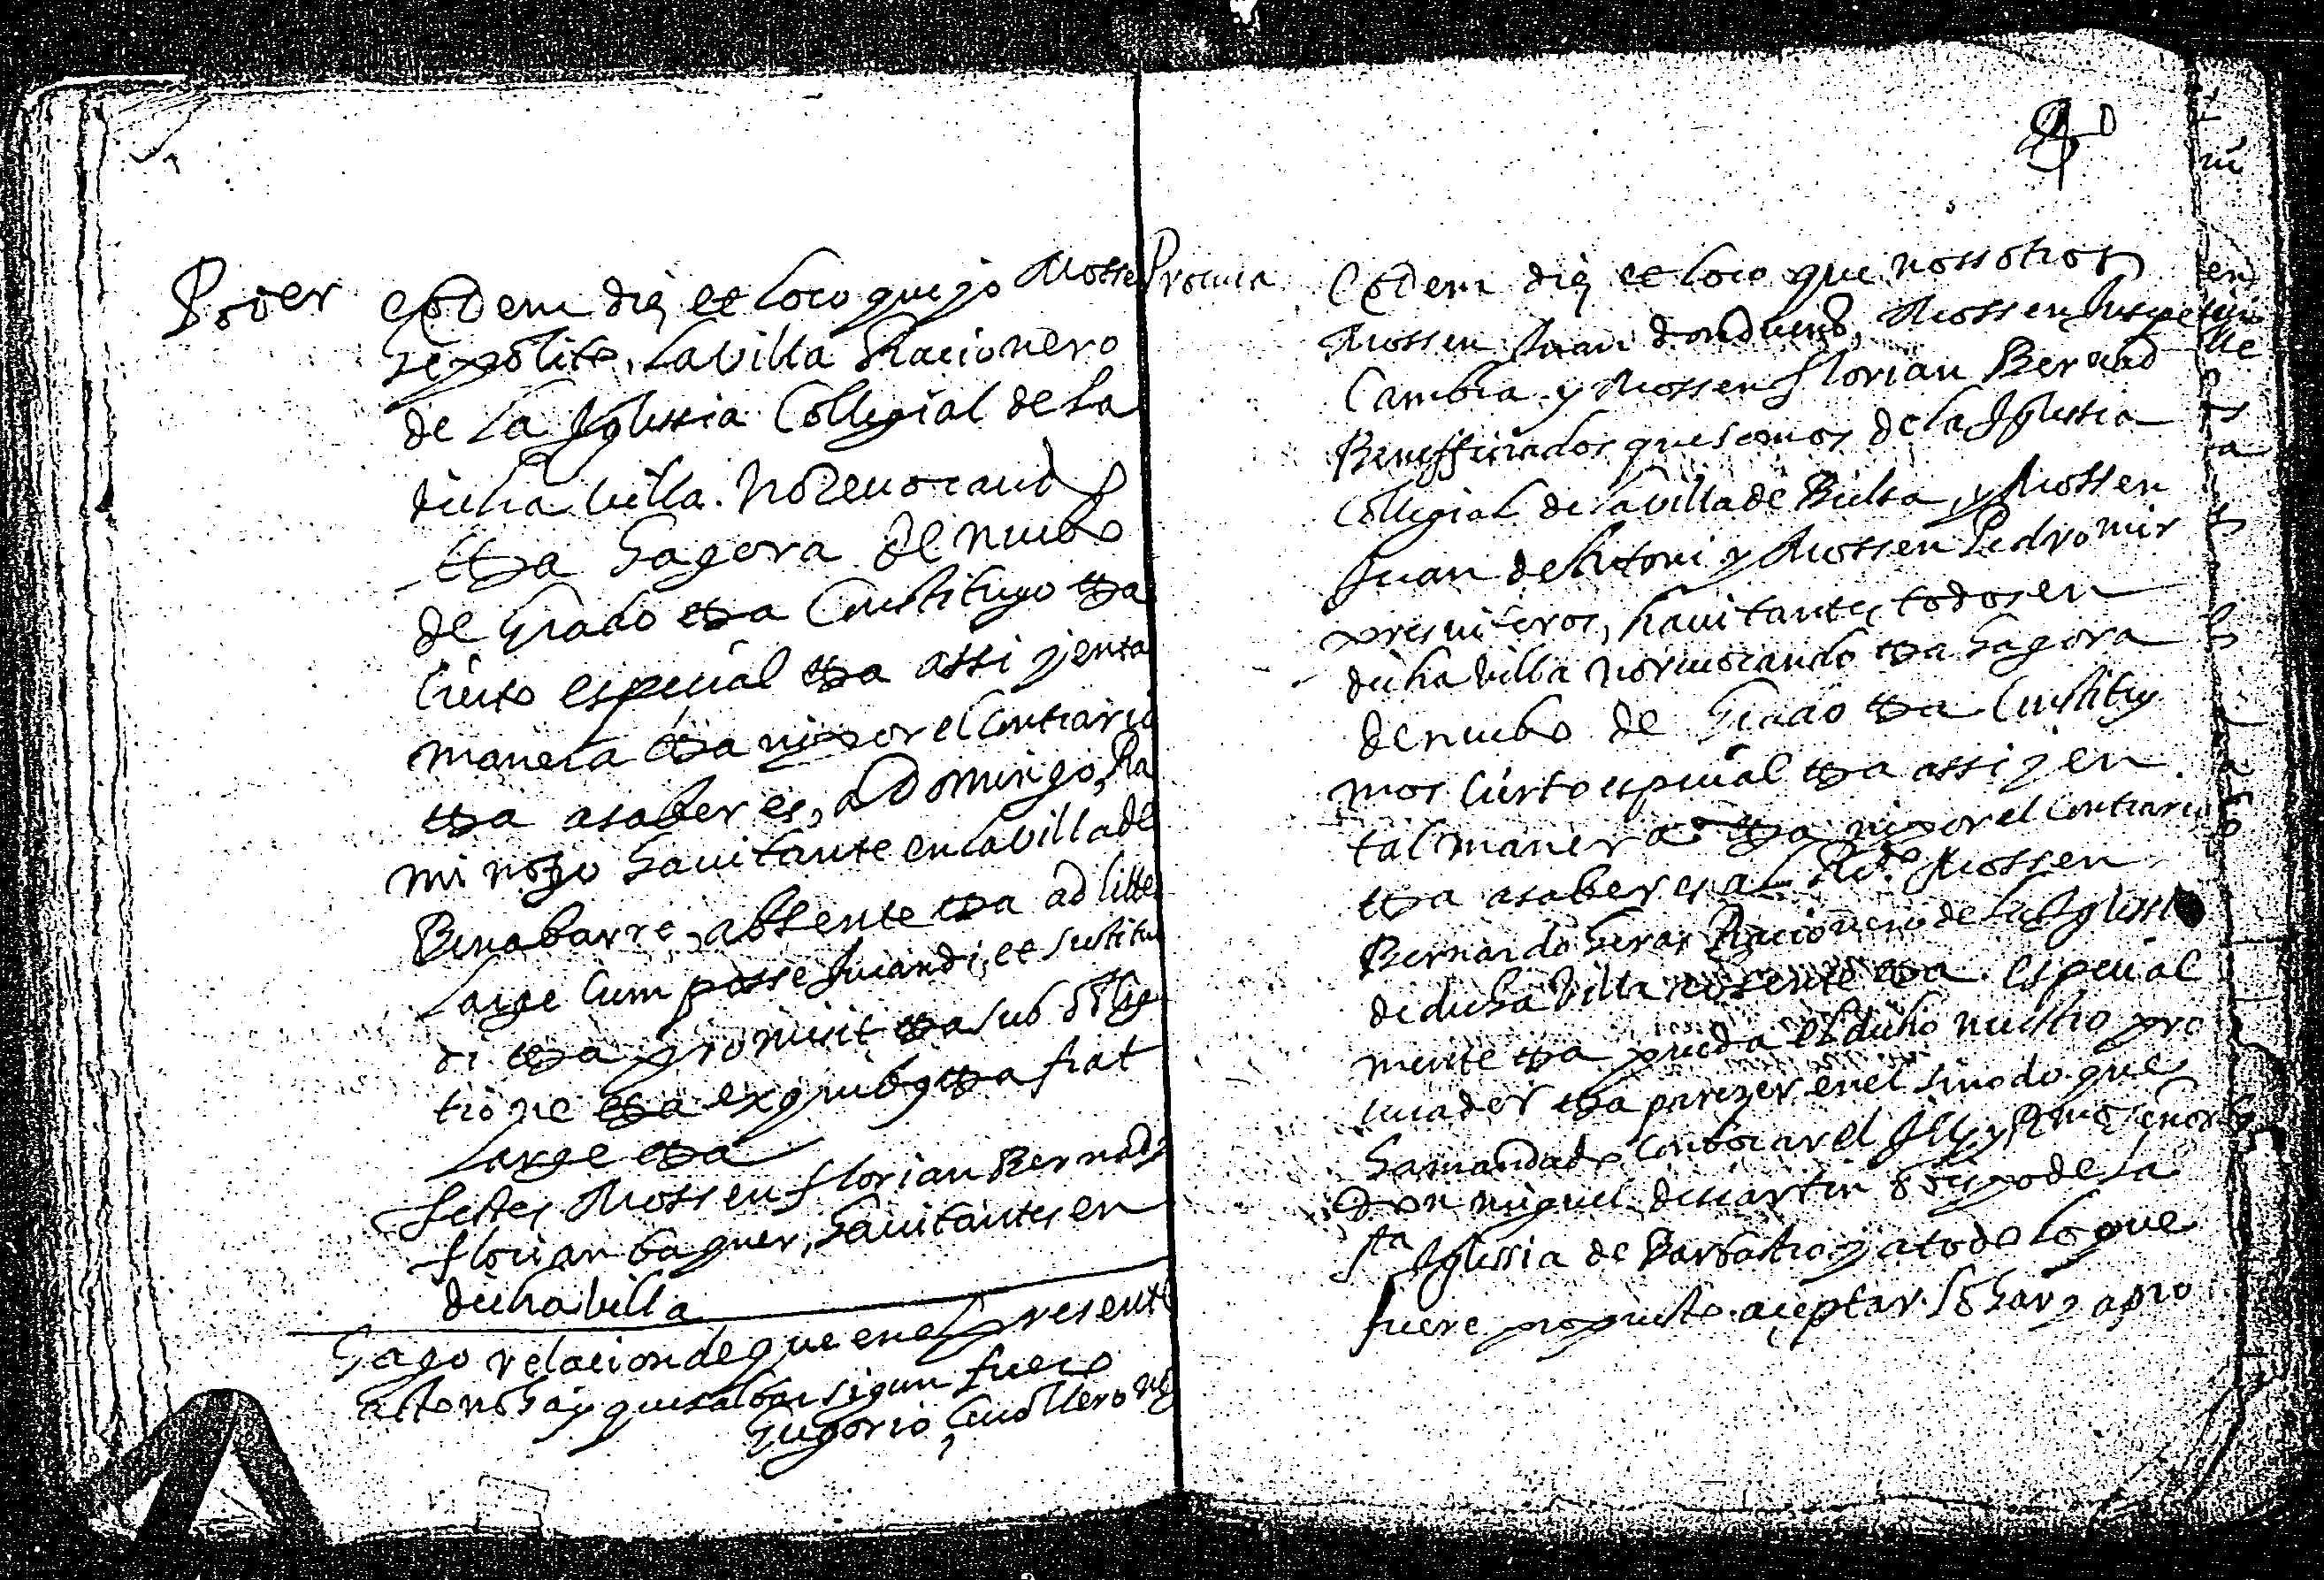 Poder
eodem die et loco que yo Mosse
Hepolito Lavilla Racionero
de la Iglessia Collegial de la
dicha villa. no revocando
etta hagora de nuebo
de grado etta Constituyo etta
cierto especial etta assi y en tal
manera etta ni por el contrario
etta asaber es, a Domingo Ra
mi nozo havitante en la villa de
Benabarre, absente etta ad littes
large cum posse jurandi, et substitu
di etta promisit etta sub oblig
tione etta ex quibus etta fiat
Large etta
testes Mossen florian Bernad y
florian baquer, havitantes en
dicha villa
Hago relacion de que en el presente
acto no hay que salbar sigun fuero
Gregorio
Procura
Eodem die et loco que nossotros
Mossen Juan Mossen
Cambra y Mossen florian Bernad
Benefficiados que somos de la Iglessia
Collegial de la villa de Bielsa y Mossen
Juan de y Mossen Pedro mir
presviteros, havitantes todos en
dicha villa no revocando etta hagora
de nuebo de Grado etta Constituy
mos cierto especial etta assi y en
tal manera etta ni por el contrario
etta asaber es al Rdo. Mossen
Bernardo heras Racionero de la Iglessi
de dicha villa etta especial
mente etta pueda el dicho nuestro pro
curador etta parezer en el sinodo que
ha mandado combocar el Ill y Rmo señor
Don miguel descartin obispo de la
sta Iglessia de Barbastro y a todo lo que
fuere propuesto aceptar lohar y apro